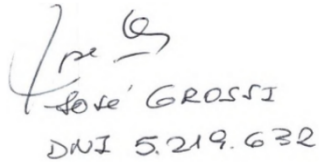 José GROSSI
DNI 5.219.632